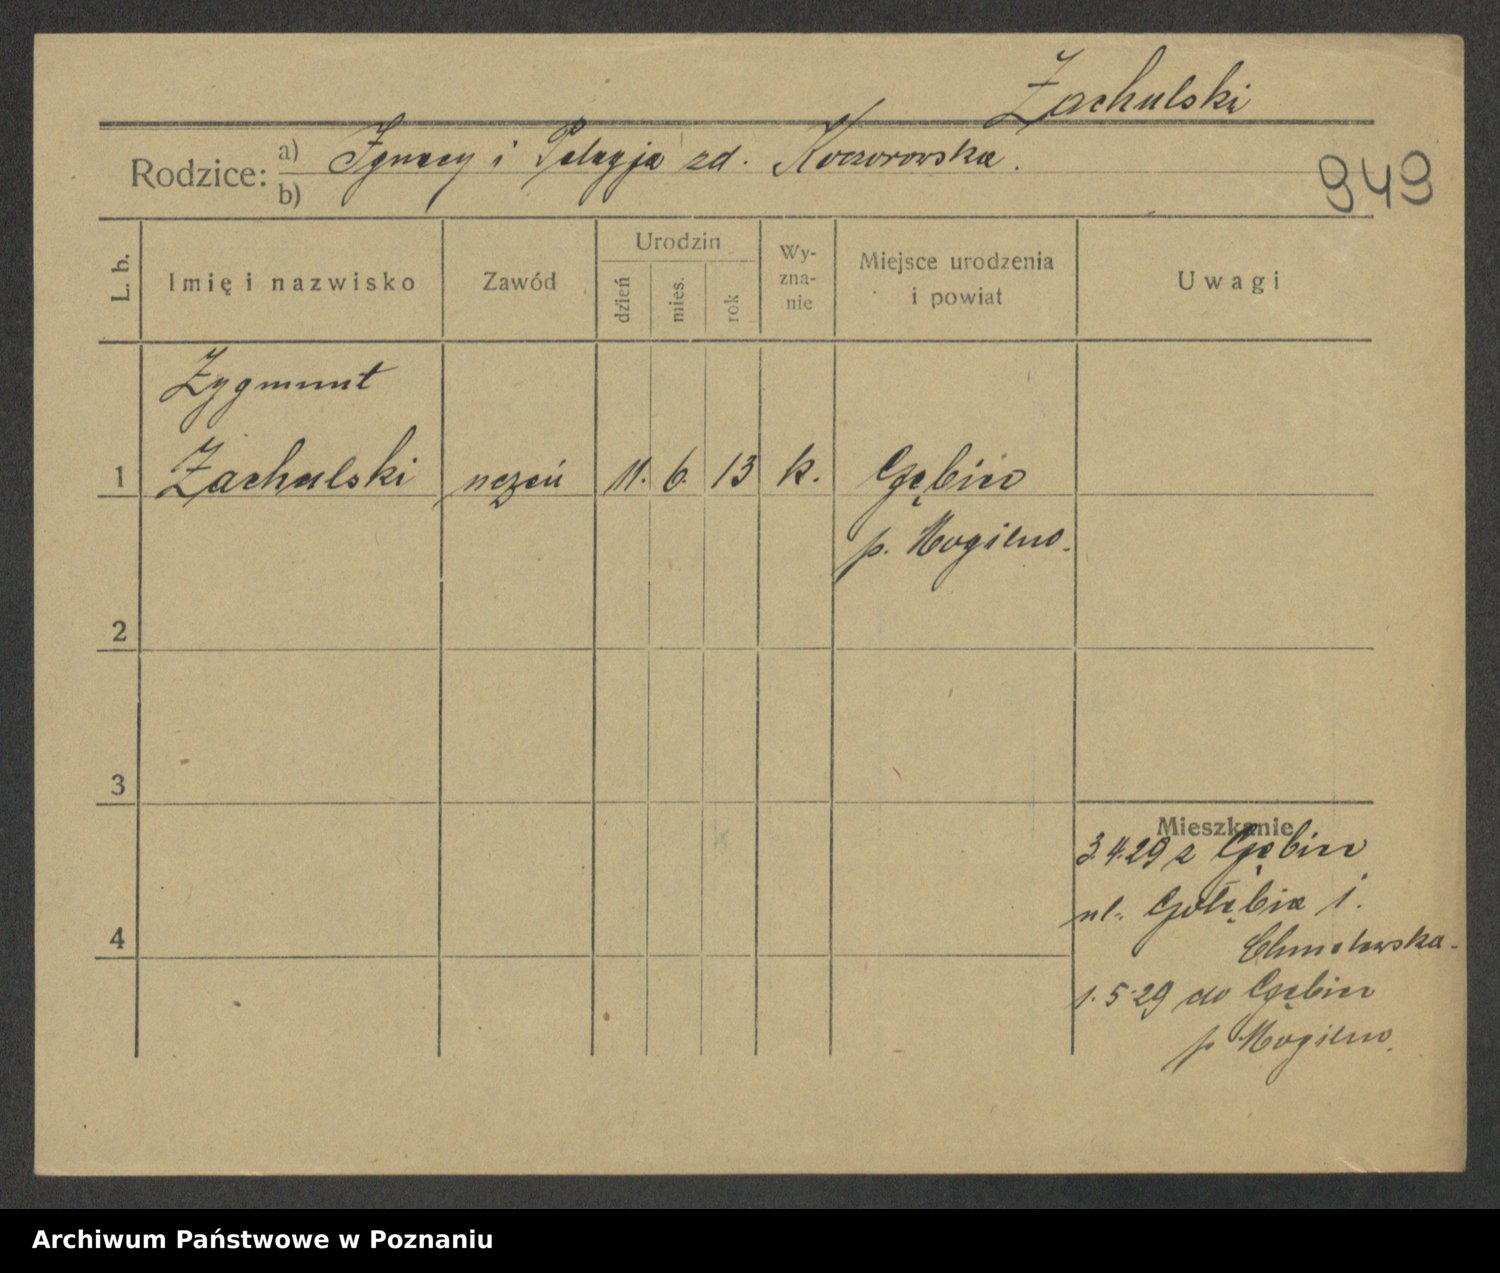 Zachulski
Rodzice: a) Ignacy i Pelagja zd. Koczorowska.
b)
949
L. b.
Imię i nazwisko
Zawód
Urodzin
dzień
mies.
rok
Wy-
zna-
nie
Miejsce urodzenia
i powiat
Uwagi
Zygmunt
1 Zachulski uczeń 11. 6. 13 k. Gębice
p. Mogilno.
2
3
Mieszkanie
3.4.29 z Gębice
ul. Gołębia 1.
4
1.5.29 do Gębice
p. Mogilno.
Archiwum Państwowe w Poznaniu